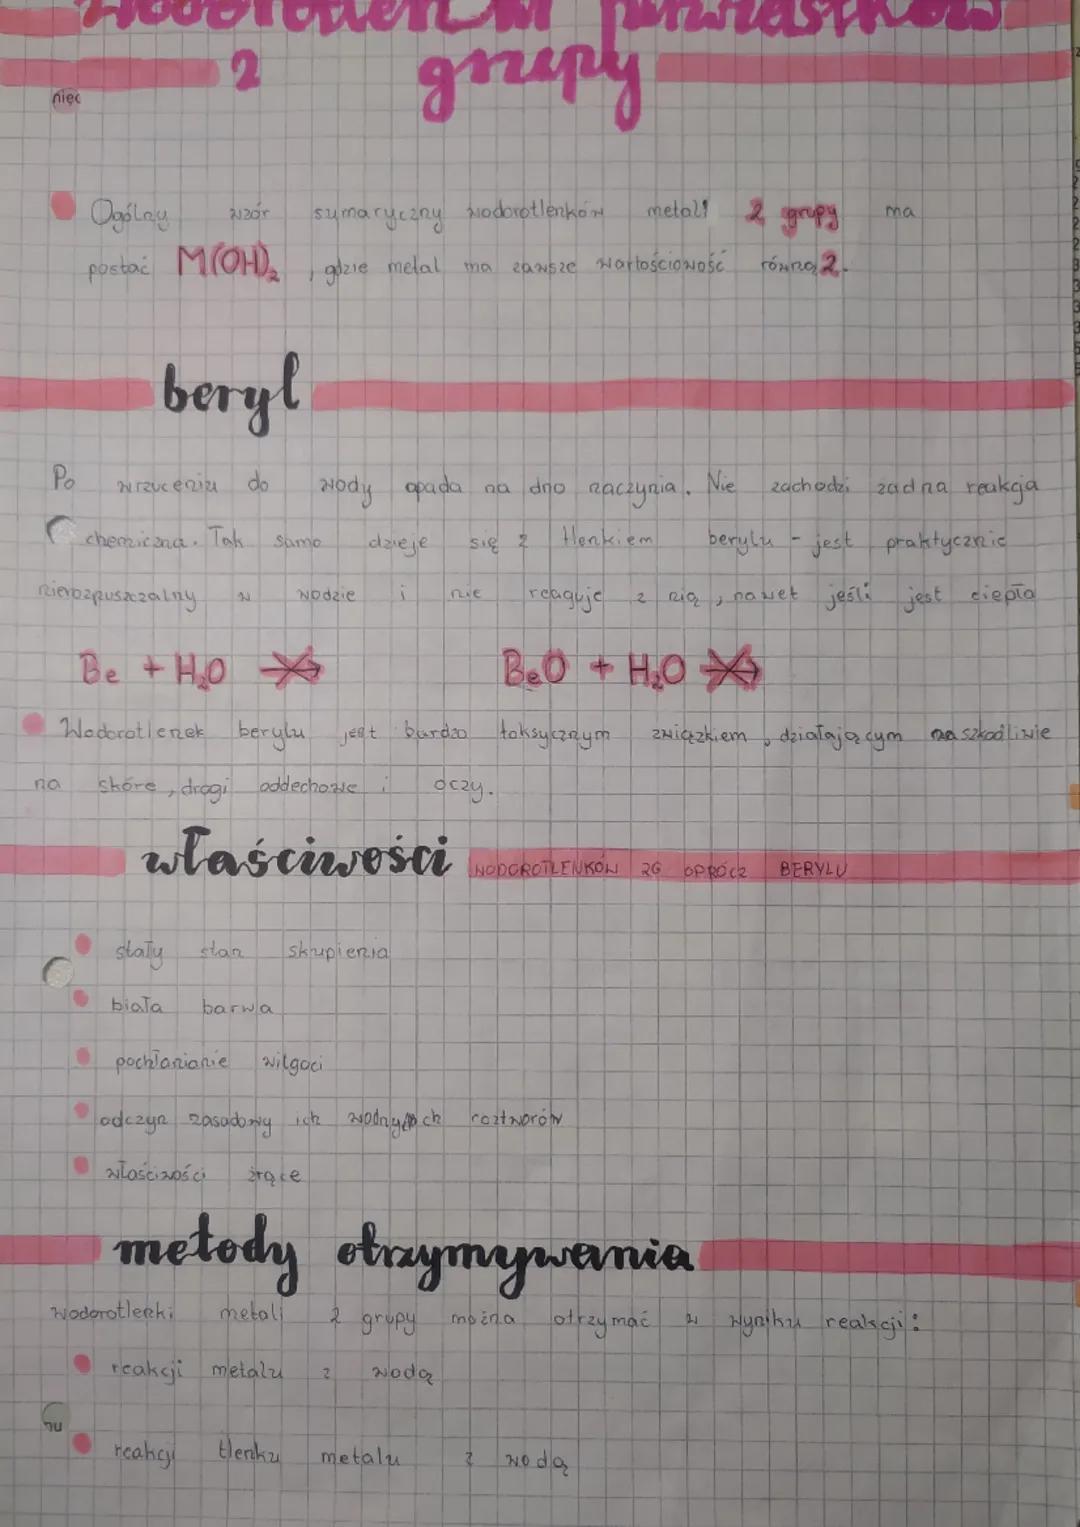 Wodorotlenki pierwiastków
2 grupy
nięc
Ogólny wzór sumaryczny wodorotlenków metali 2 grupy ma
postać M(OH)₂, gdzie metal ma zawsze wartościowość równą 2.
beryl
Po wrzuceniu do wody opada na dno naczynia. Nie zachodzi żadna reakcja
chemiczna. Tak samo dzieje się z tlenkiem berylu - jest praktycznie
nierozpuszczalny w wodzie i nie reaguje z nią, nawet jeśli jest ciepła
Be + H₂O → BeO + H₂O →
Wodorotlenek berylu jest bardzo toksycznym związkiem, działającym szkodliwie
na skórę, drogi oddechowe i oczy.
właściwości WODOROTLENKÓW 2G OPRÓCZ BERYLU
stały stan skupienia
biała barwa
pochłanianie wilgoci
odczyn zasadowy ich wodnych roztworów
właściwości żrące
metody otrzymywania
wodorotlenki metali 2 grupy można otrzymać w wyniku reakcji:
reakcji metalu z wodą
nu
reakcji tlenku metalu z wodą